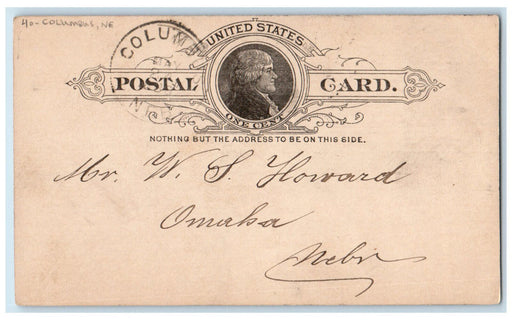 40-COLUMBUS, NE
COLUM
MAY
UNITED STATES
POSTAL CARD.
ONE CENT
NOTHING BUT THE ADDRESS TO BE ON THIS SIDE.
Mr. W. S. Howard
Omaha
Nebr